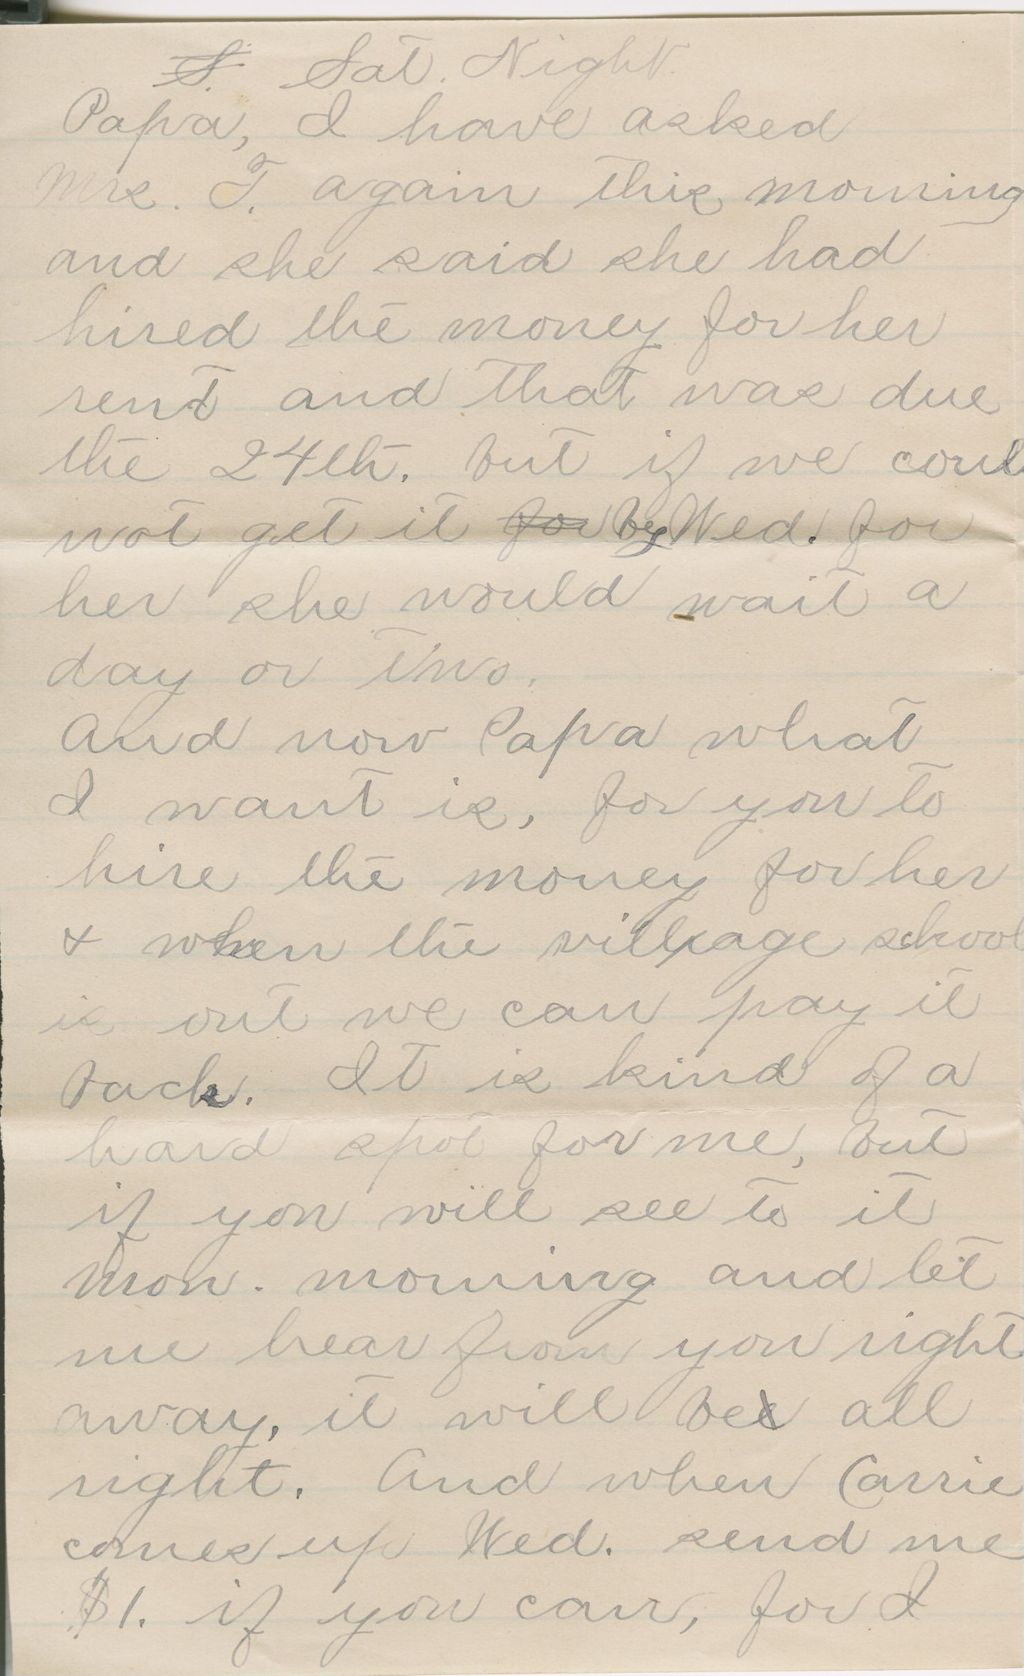 S. Sat. Night.
Papa, I have asked
Mrs. T. again this morning
and she said she had
hired the money for her
rent and that was due
the 24th. but if we coul
not get it for by Wed. for
her she would wait a
day or two.
And now Papa what
I want is, for you to
hire the money for her
& when the village school
is out we can pay it
back. It is kind of a
hard spot for me, but
if you will see to it
Mon. morning and let
me hear from you right
away, it will be all
right. And when Carrie
comes up Wed. send me
$1. if you can, for I